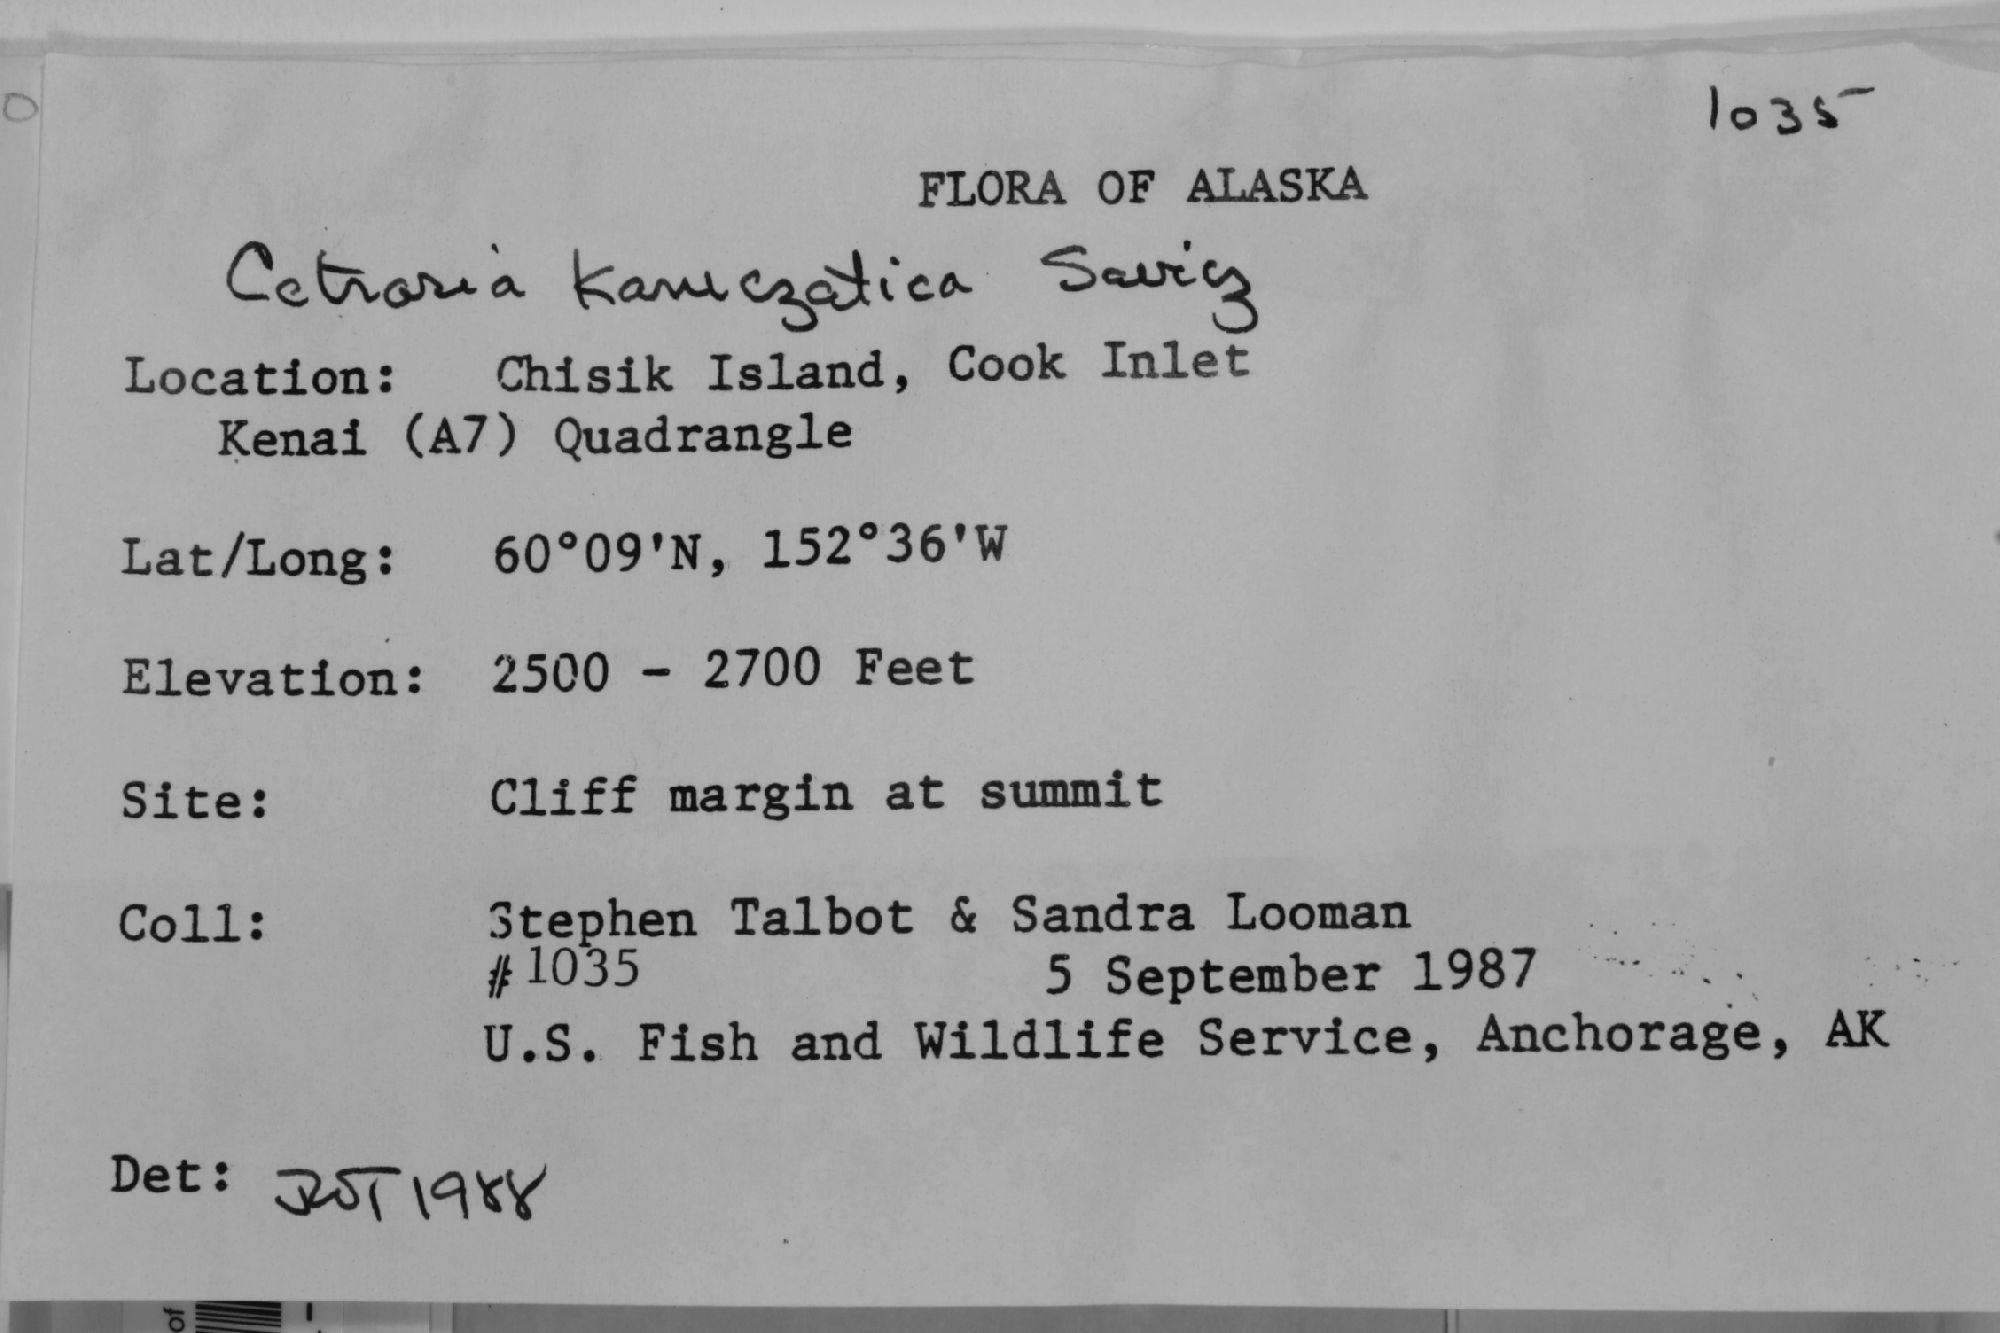 1035
FLORA OF ALASKA
Cetraria kamczatica Savicz
Location: Chisik Island, Cook Inlet
Kenai (A7) Quadrangle
Lat/Long: 60°09'N, 152°36'W
Elevation: 2500 - 2700 Feet
Site: Cliff margin at summit
Coll: Stephen Talbot & Sandra Looman
#1035 5 September 1987
U.S. Fish and Wildlife Service, Anchorage, AK
Det: 1988
of